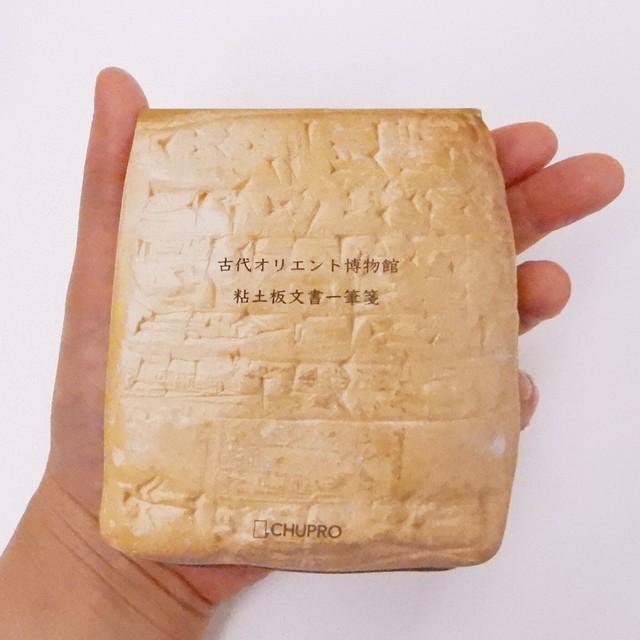 古代オリエント博物館
粘土板文書一筆箋
CHUPRO